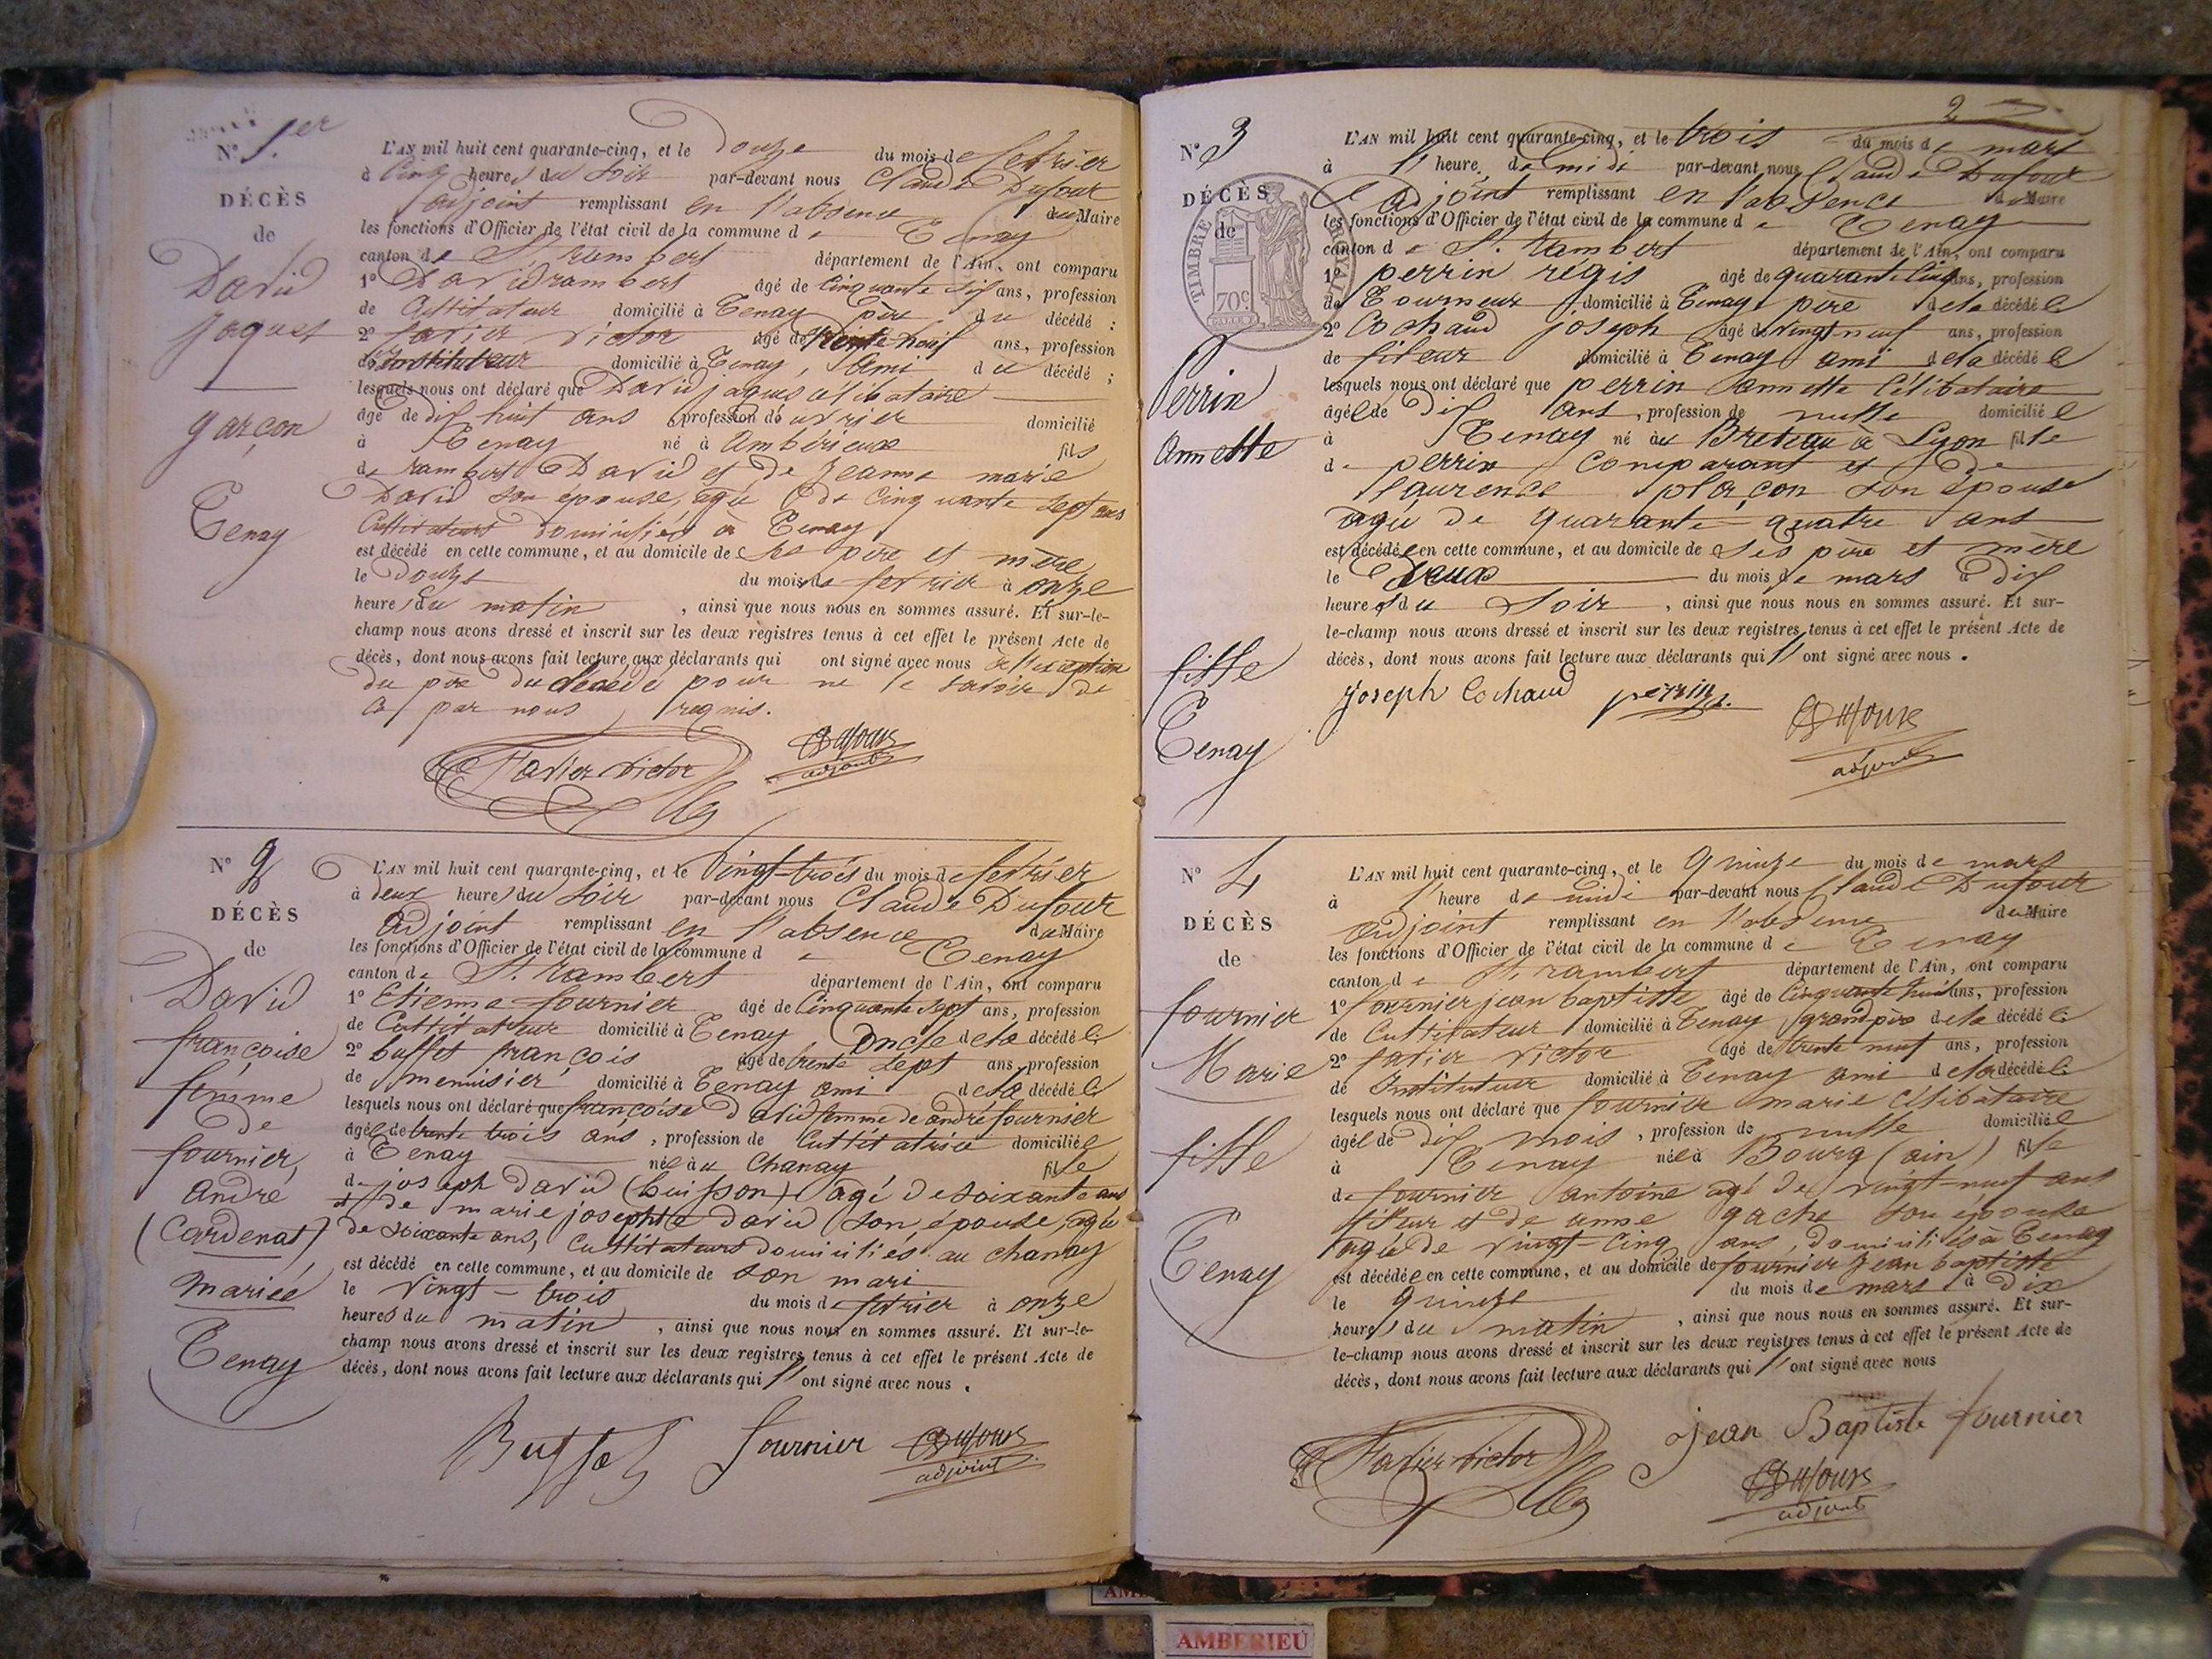 N° 1.er
DÉCÈS
de
David
jaques
garçon
Tenay
L'AN mil huit cent quarante-cinq, et le Douze du mois de fevrier
à Cinq heures du Soir par-devant nous Claude Dufour
adjoint remplissant en l'absence du Maire
les fonctions d'Officier de l'état civil de la commune de Tenay
canton de St. rambert département de l'Ain, ont comparu
1° David rambert âgé de Cinquante six ans, profession
de Cultivateur domicilié à Tenay Père du décédé ;
2° favier Victor âgé de trente-neuf ans, profession
de instituteur domicilié à Tenay, Ami du décédé ;
lesquels nous ont déclaré que David jaques célibataire
âgé de dix huit ans profession de ouvrier domicilié
à Tenay né à Ambérieux fils
de rambert David et de Jeanne marie
David son épouse, agée de Cinquante sept ans
Cultivateurs domiciliés à Tenay
est décédé en cette commune, et au domicile de ses père et mère
le Douze du mois de fevrier à onze
heures du matin , ainsi que nous nous en sommes assuré. Et sur-le-
champ nous avons dressé et inscrit sur les deux registres tenus à cet effet le présent Acte de
décès, dont nous avons fait lecture aux déclarants qui ont signé avec nous à l'exception
du père du décédé pour ne le savoir de
ce par nous requis.
favier Victor
CDufour
adjoint
N° 2
DÉCÈS
de
David
françoise
femme
de
fournier,
andré
(Cardenat)
mariée
Tenay
L'AN mil huit cent quarante-cinq, et le Vingt-trois du mois de fevrier
à deux heures du Soir par-devant nous Claude Dufour
adjoint remplissant en l'absence du Maire
les fonctions d'Officier de l'état civil de la commune de Tenay
canton de St. rambert département de l'Ain, ont comparu
1° Etienne fournier âgé de Cinquante sept ans, profession
de Cultivateur domicilié à Tenay Oncle de la décédée ;
2° buffet françois âgé de trente sept ans, profession
de menuisier domicilié à Tenay ami de la décédée ;
lesquels nous ont déclaré que françoise David femme de andré fournier
âgée de trente trois ans, profession de Cultivatrice domiciliée
à Tenay née à u Chanay fille
de joseph david (buisson) agé de soixante ans
et de marie josephte david son épouse, agée
de soixante ans, Cultivateurs domiciliés au chanay
est décédé en cette commune, et au domicile de son mari
le vingt-trois du mois de fevrier à onze
heures du matin , ainsi que nous nous en sommes assuré. Et sur-le-
champ nous avons dressé et inscrit sur les deux registres tenus à cet effet le présent Acte de
décès, dont nous avons fait lecture aux déclarants qui l'ont signé avec nous .
Buffet fournier CDufour
adjoint
2
N° 3
DÉCÈS
de
TIMBRE ROYAL
70c
Perrin
annette
fille
Tenay
L'AN mil huit cent quarante-cinq, et le trois du mois de mars
à l' heure de midi par-devant nous Claude Dufour
adjoint remplissant en l'absence du Maire
les fonctions d'Officier de l'état civil de la commune de Tenay
canton de St. rambert département de l'Ain, ont comparu
1° perrin régis âgé de quarante cinq ans, profession
de Tourneur domicilié à Tenay père de la décédée
2° Cochaud joseph âgé de vingt neuf ans, profession
de fileur domicilié à Tenay ami de la décédée
lesquels nous ont déclaré que perrin annette Célibataire
âgée de dix ans, profession de nulle domiciliée
à Tenay né à u Breteau à Lyon fille
de perrin Comparant et de
laurence plaçon son épouse
agée de quarante-quatre ans
est décédée en cette commune, et au domicile de ses père et mère
le deux du mois de mars à dix
heures du Soir , ainsi que nous nous en sommes assuré. Et sur-
le-champ nous avons dressé et inscrit sur les deux registres tenus à cet effet le présent Acte de
décès, dont nous avons fait lecture aux déclarants qui l'ont signé avec nous .
joseph Cochaud perrin CDufour
adjoint
N° 4
DÉCÈS
de
fournier
Marie
fille
Tenay
L'AN mil huit cent quarante-cinq, et le quinze du mois de mars
à l' heure de midi par-devant nous Claude Dufour
adjoint remplissant en l'absence du Maire
les fonctions d'Officier de l'état civil de la commune de Tenay
canton de St. rambert département de l'Ain, ont comparu
1° fournier jean baptiste âgé de Cinquante huit ans, profession
de Cultivateur domicilié à Tenay grand père de la décédée ;
2° favier victor âgé de trente neuf ans, profession
de Instituteur domicilié à Tenay ami de la décédée ;
lesquels nous ont déclaré que fournier marie Célibataire
âgée de dix mois, profession de nulle domiciliée
à Tenay née à Bourg (ain) fille
de fournier antoine agé de vingt-neuf ans
fileur et de anne gache son épouse
agée de vingt-Cinq ans, domiciliés à Tenay
est décédée en cette commune, et au domicile de fournier Jean baptiste
le quinze du mois de mars à dix
heures du matin , ainsi que nous nous en sommes assuré. Et sur-
le-champ nous avons dressé et inscrit sur les deux registres tenus à cet effet le présent Acte de
décès, dont nous avons fait lecture aux déclarants qui l'ont signé avec nous
favier victor jean Baptiste fournier
CDufour
adjoint
AMBERIEU